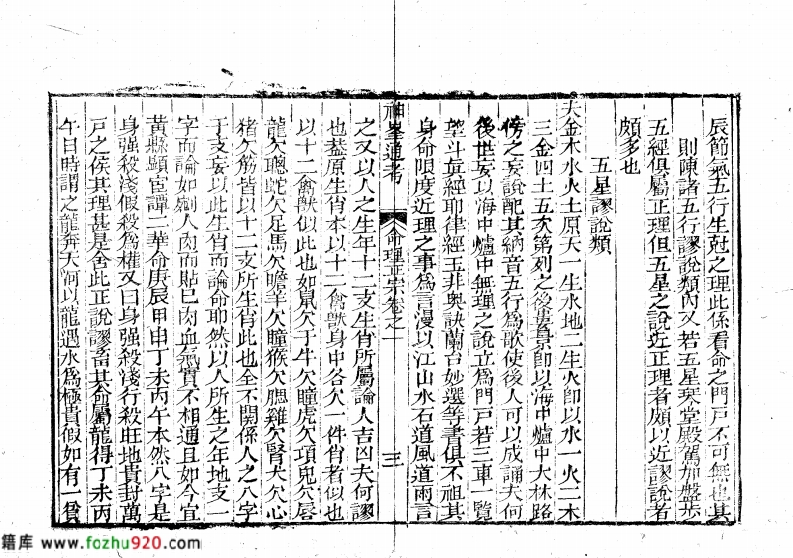 辰節氣五行生尅之理此係看命之門戶不可無也其
則陳諸五行謬說類內又若五星琹堂殿駕加盤步
五經俱屬正理但五星之說近正理者頗以近謬說若
頗多也
五星謬說類
夫金木水火土原天一生水地二生火卽以水一火二木
三金四土五次第列之後婁景卽以海中爐中大林路
傍之妄說配其納音五行爲歌使後人可以成誦夫何
後世妄以海中爐中無理之說立爲門戶若三車一覽
望斗眞經耶律經玉井奥訣蘭台妙選等書俱不祖其
身命限度近理之事爲言漫以江山水石道風道雨言
神峯通考
命理正宗卷之一
三
之又以人之生年十二支生肖所屬論人吉凶夫何謬
也葢原生肖本以十二禽獸身中各欠一件肖者似也
以十二禽獸似此也如鼠欠于牛欠瞳虎欠項兎欠唇
龍欠聰蛇欠足馬欠瞻羊欠瞳猴欠腮雞欠腎犬欠心
猪欠筋皆以十二支所生肖此也全不関係人之八字
于支妄以此生肖而論命耶然以人所生之年地支一
字而論如剜人肉而貼巳肉血氣質不相通且如今宜
黃縣顯宦譚二華命庚辰甲申丁未丙午本然八字是
身强殺淺假殺爲權又曰身强殺淺行殺旺地貴封萬
戸之侯其理甚是舍此正說謬畜其命屬龍得丁未丙
午日時謂之龍奔天河以龍遇水爲極貴假如有一貧
籍库 www.fozhu920.com